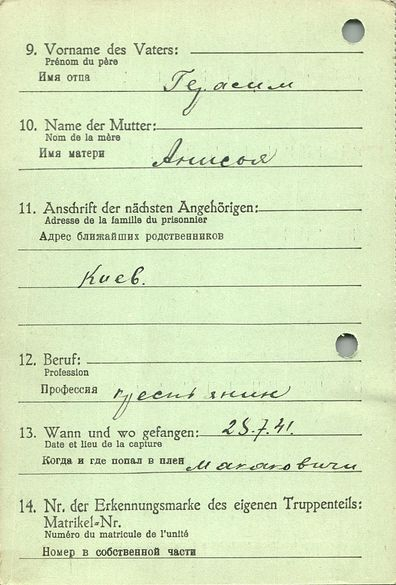 9. Vorname des Vaters:
Prénom du père
Имя отца
Герасим
10. Name der Mutter:
Nom de la mère
Имя матери
Анисоя
11. Anschrift der nächsten Angehörigen:
Adresse de la famille du prisonnier
Адрес ближайших родственников
Киев.
12. Beruf:
Profession
Профессия
13. Wann und wo gefangen: 25.7.41.
Date et lieu de la capture
Когда и где попал в плен Макаковичи
14. Nr. der Erkennungsmarke des eigenen Truppenteils:
Matrikel=Nr.
Numéro du matricule de l'unité
Номер в собственной части